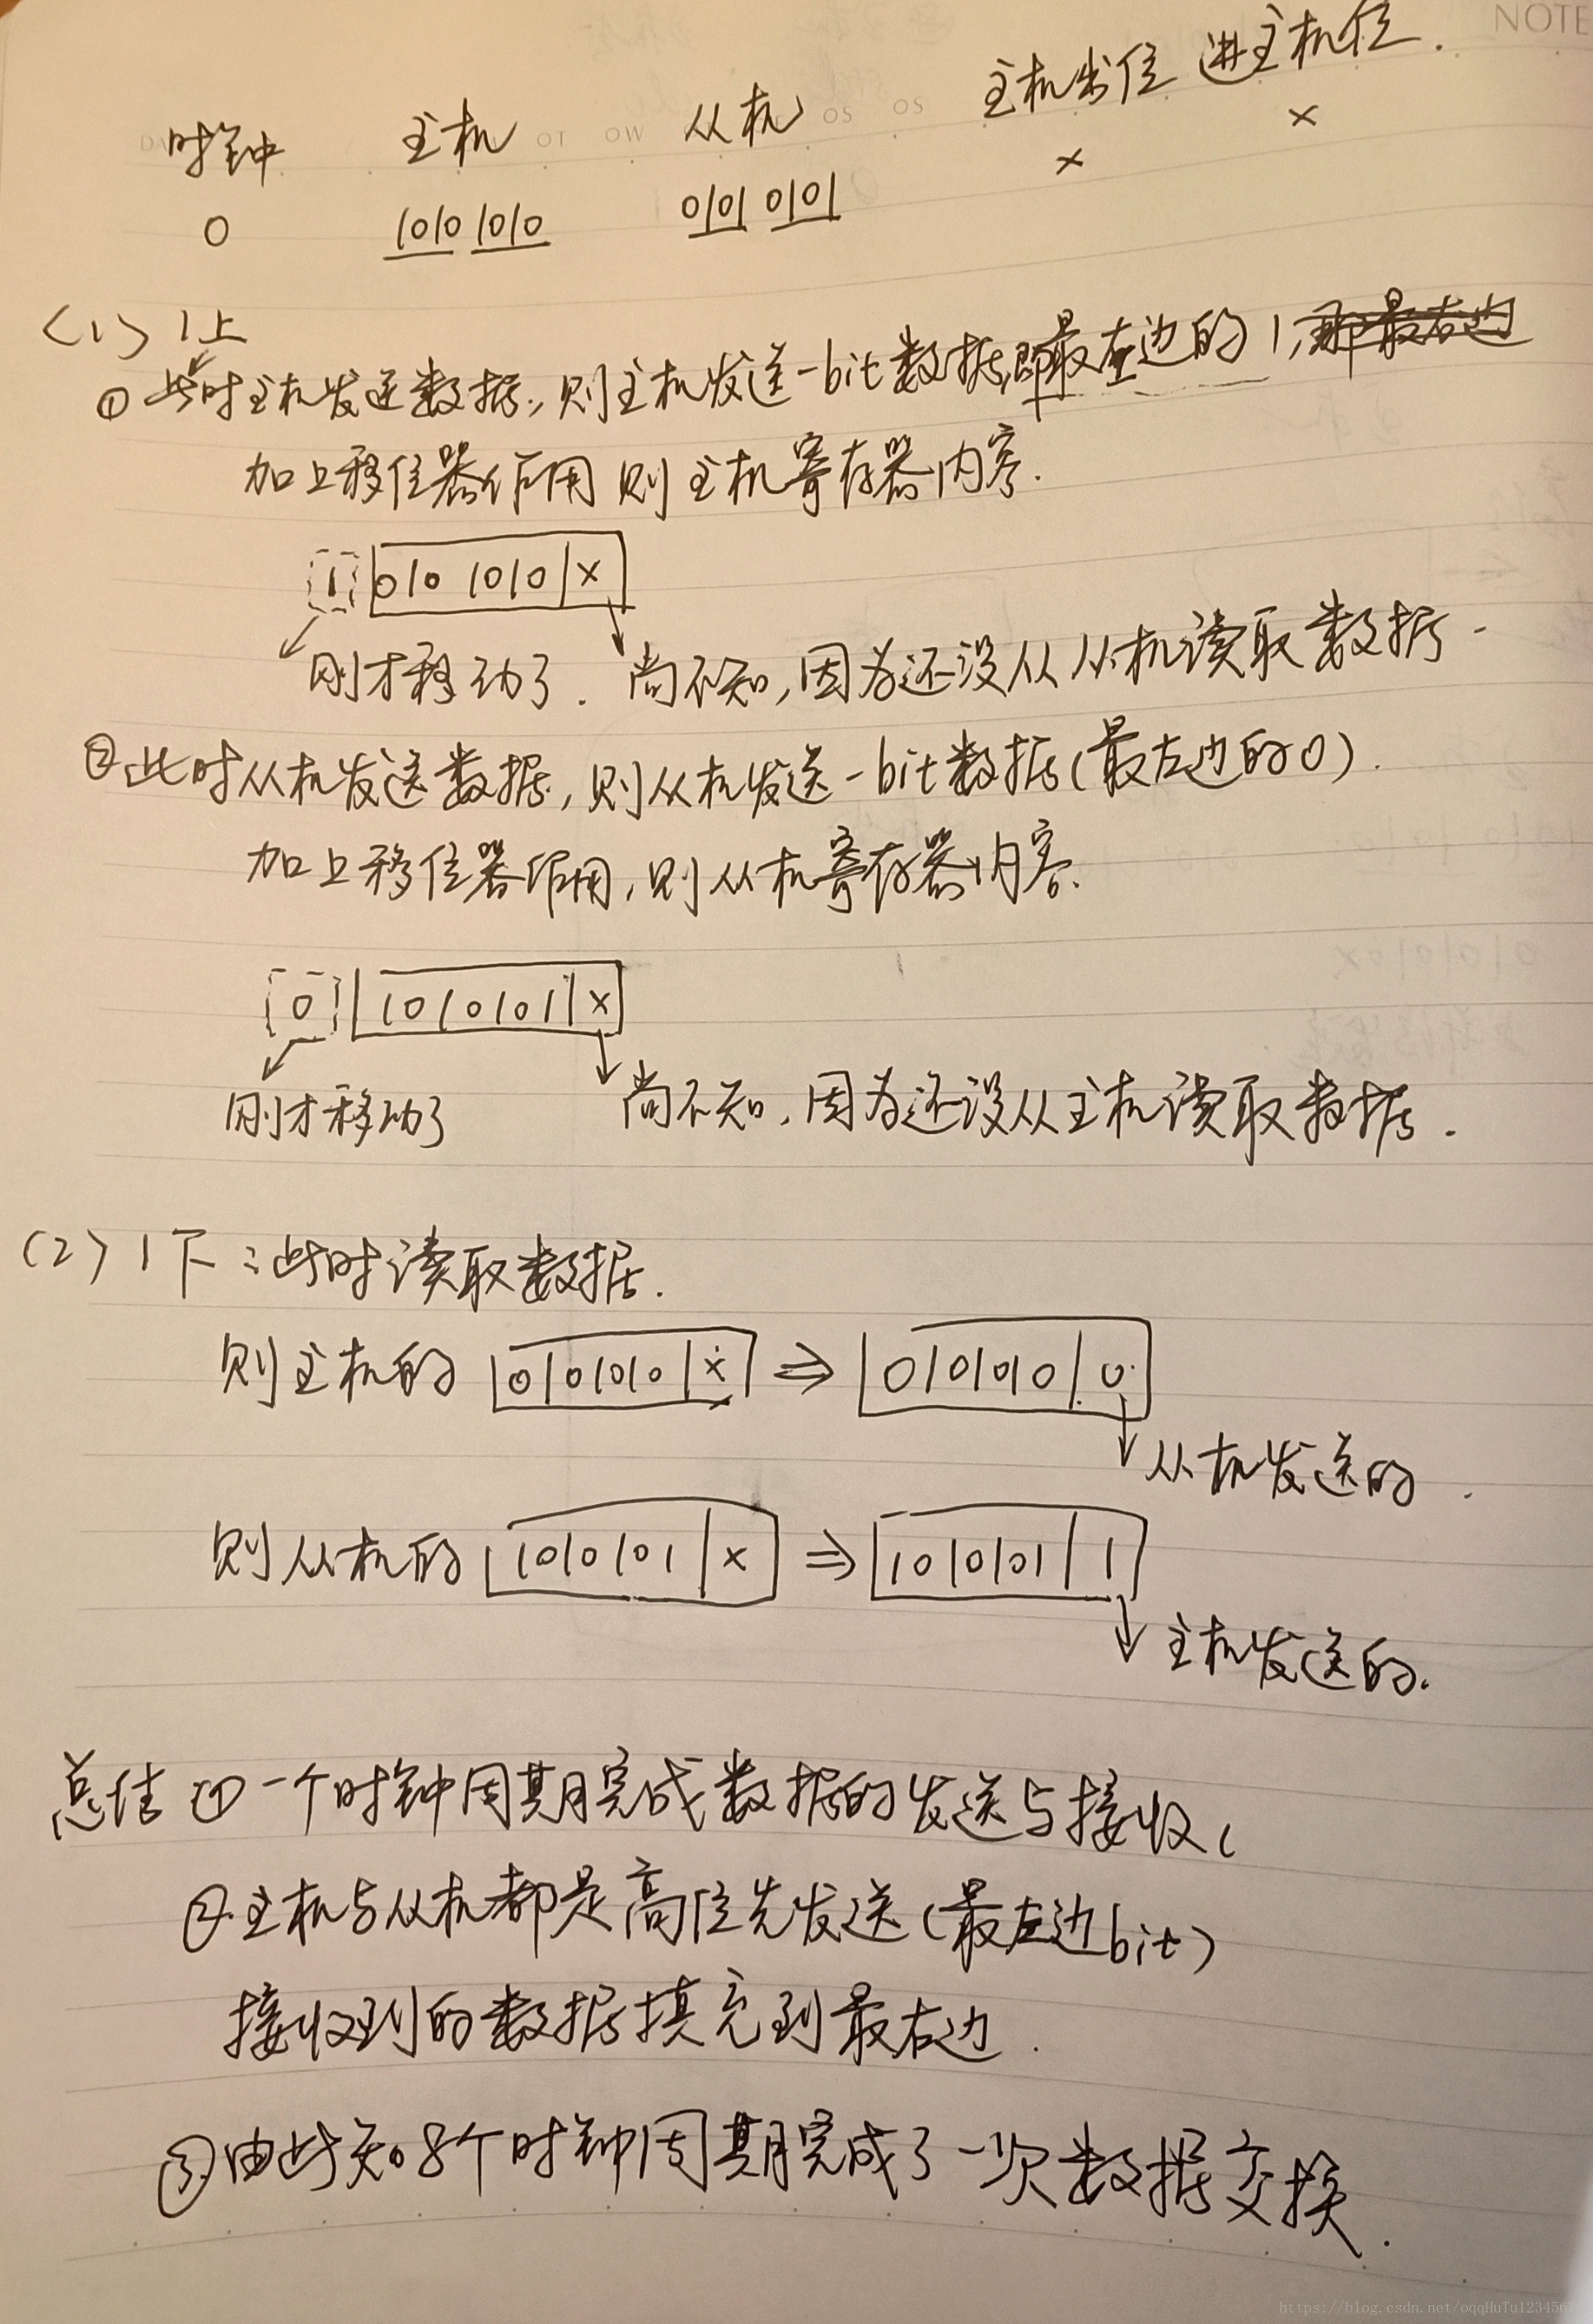 NOTE
时钟 主机 从机 主机出位 进主机位.
0 1010 1010 0101 0101 × ×
(1) 1上
① 此时主机发送数据,则主机发送一bit数据,即最左边的1,
加上移位器作用则主机寄存器内容.
1 010 1010 x
刚才移动了. 尚不知,因为还没从从机读取数据.
②此时从机发送数据,则从机发送一bit数据(最左边的0).
加上移位器作用,则从机寄存器内容.
0 1010101 x
刚才移动了 尚不知,因为还没从主机读取数据.
(2) 1下:此时读取数据.
则主机的 0101010 x ⇒ 0101010 0
从机发送的.
则从机的 1010101 x ⇒ 1010101 1
主机发送的.
总结 ①一个时钟周期完成数据的发送与接收,
②主机与从机都是高位先发送(最左边bit)
接收到的数据填充到最右边.
③由此知8个时钟周期完成了一次数据交换.